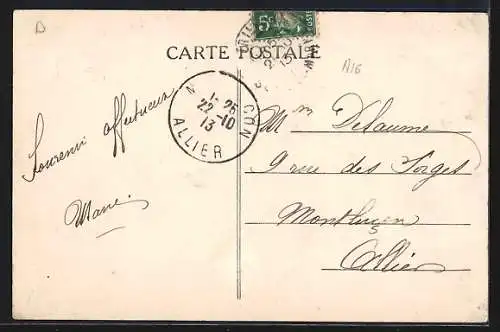 D
5c
POSTES
CARTE POSTALE
A16
1 25
22-10
13
ALLIER
Souvenir affectueux
Marie
Mme Delaume
9 rue des Forges
Montluçon
Allier